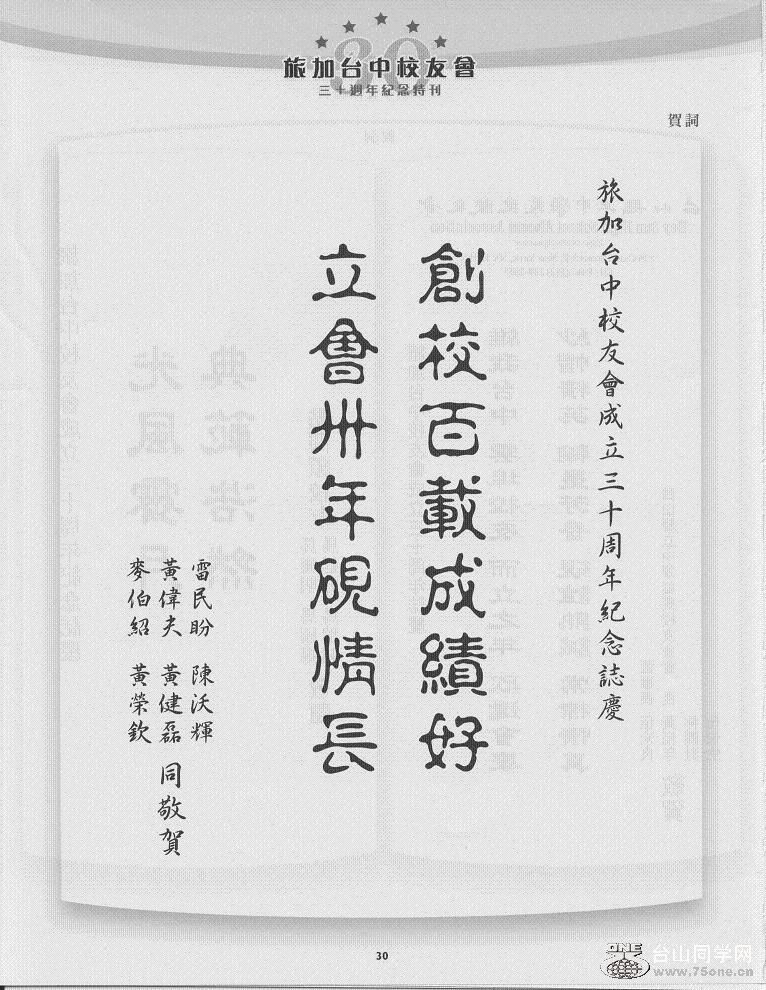 30
旅加台中校友會
三十週年紀念特刊
賀詞
旅加台中校友會成立三十周年紀念誌慶
創校百載成績好
立會卅年硯情長
雷民盼 陳沃輝
黃偉夫 黃健磊 同敬賀
麥伯紹 黃榮欽
30
ONE
台山同学网
www.75one.cn